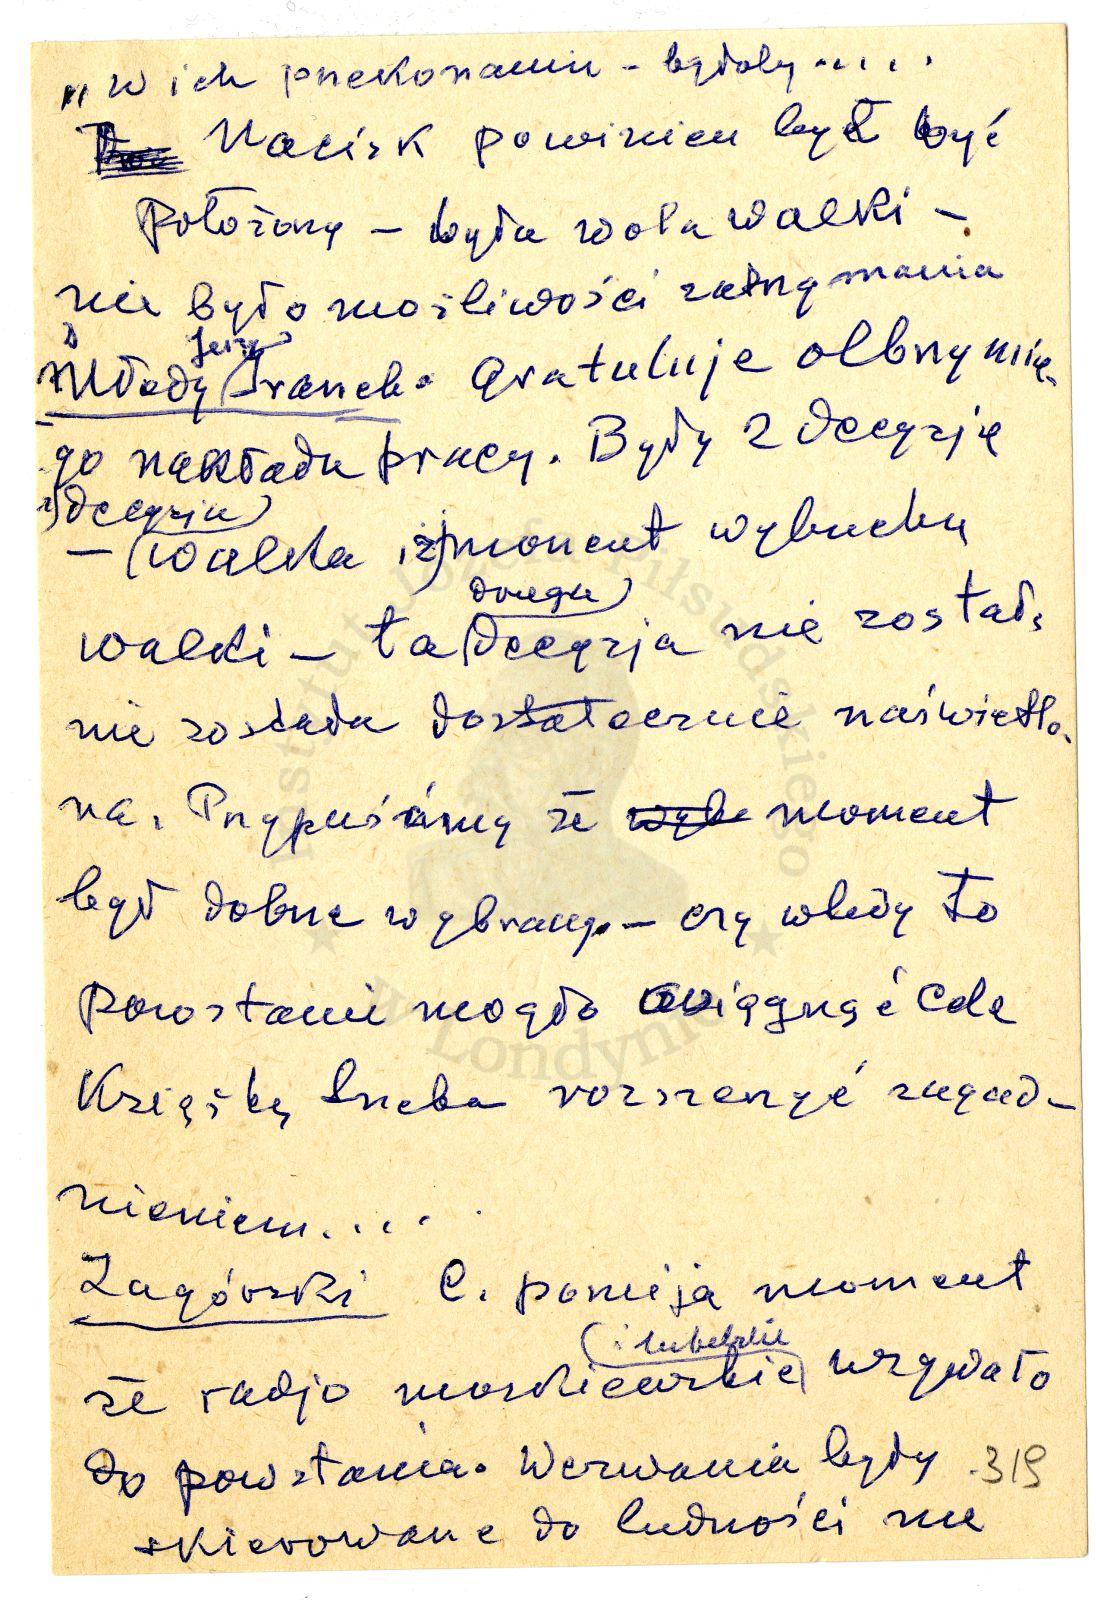 „w ich przekonaniu – byłoby.....
Nacisk powinien był być
położony – była wola walki –
nie było możliwości zatrzymania
Młody Jerzy Iranek. Gratuluje olbrzymie-
go nakładu pracy. Były 2 decyzje
– 1) decyzja walka i 2) moment wybuchu
walki – ta druga decyzja nie został,
nie została dostatecznie naświetlo-
na. Przypuśćmy że wybr moment
był dobrze wybrany – czy wtedy to
powstanie mogło osiągnąć cele
Książkę trzeba rozszerzyć zagad-
nieniem....
Zagórski C. pomija moment
że radjo moskiewskie (i lubelskie) wzywało
do powstania. Wezwania były
skierowane do ludności nie
319
Instytut Józefa Piłsudskiego
w Londynie